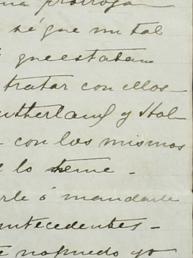 una prorroga
sé que un tal
que estaban
tratar con ellos
Sutherland y Hol
con los mismos
e lo teme -
rle á mandarle
antecedentes -
no puedo yo